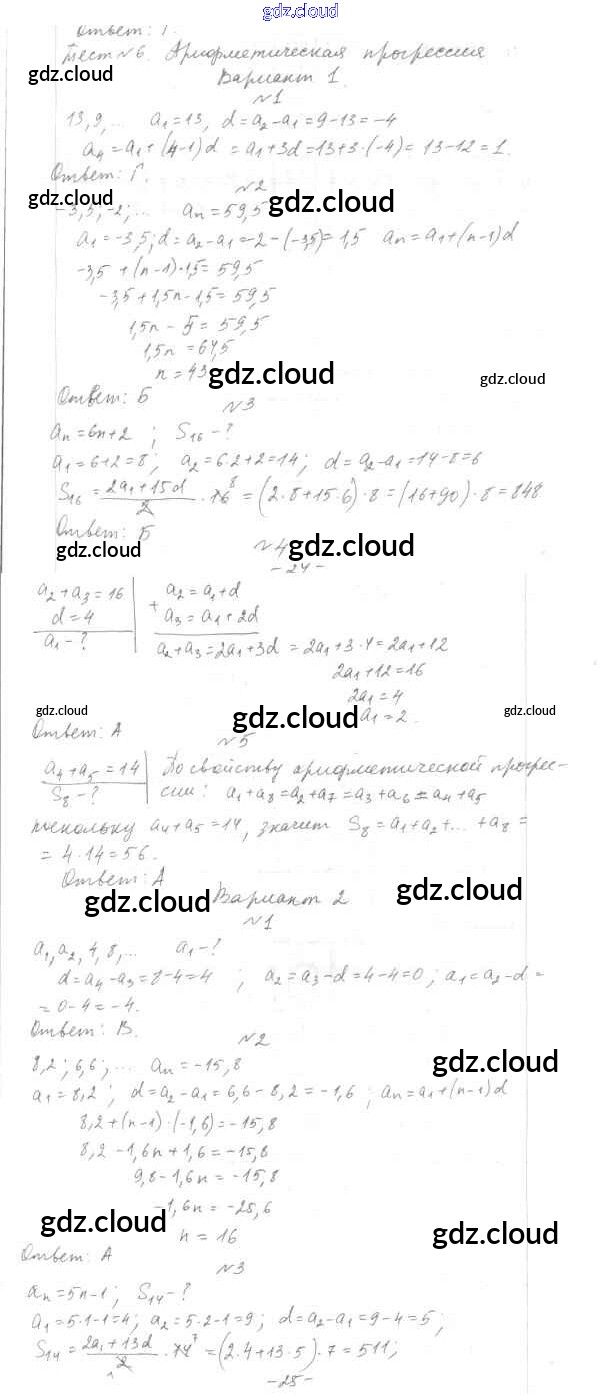 gdz.cloud
Ответ: Г.
Тест №6. Арифметическая прогрессия
gdz.cloud
Вариант 1
№1
13, 9, ... a₁=13, d=a₂-a₁=9-13=-4
a₄=a₁+(4-1)d=a₁+3d=13+3·(-4)=13-12=1.
Ответ: Г.
№2
gdz.cloud gdz.cloud
-3,5; -2; ... aₙ=59,5
a₁=-3,5; d=a₂-a₁=-2-(-3,5)=1,5 aₙ=a₁+(n-1)d
-3,5+(n-1)·1,5=59,5
-3,5+1,5n-1,5=59,5
1,5n-5=59,5
1,5n=64,5
n=43
gdz.cloud gdz.cloud
Ответ: Б
№3
aₙ=6n+2; S₁₆-?
a₁=6+2=8; a₂=6·2+2=14; d=a₂-a₁=14-8=6
S₁₆=(2a₁+15d)/2·16 ⁸=(2·8+15·6)·8=(16+90)·8=848
Ответ: Б
gdz.cloud №4 gdz.cloud
-24-
a₂+a₃=16 a₂=a₁+d
d=4 + a₃=a₁+2d
a₁-? a₂+a₃=2a₁+3d=2a₁+3·4=2a₁+12
2a₁+12=16
2a₁=4
a₁=2.
gdz.cloud gdz.cloud gdz.cloud
Ответ: А
№5
a₄+a₅=14 По свойству арифметической прогрес-
S₈-? сии: a₁+a₈=a₂+a₇=a₃+a₆=a₄+a₅
поскольку a₄+a₅=14, значит S₈=a₁+a₂+...+a₈=
=4·14=56.
Ответ: А
gdz.cloud Вариант 2 gdz.cloud
№1
a₁, a₂, 4, 8, ... a₁-?
d=a₄-a₃=8-4=4; a₂=a₃-d=4-4=0; a₁=a₂-d=
=0-4=-4.
Ответ: В.
№2
8,2; 6,6; ... aₙ=-15,8
gdz.cloud
a₁=8,2; d=a₂-a₁=6,6-8,2=-1,6; aₙ=a₁+(n-1)d
8,2+(n-1)·(-1,6)=-15,8
8,2-1,6n+1,6=-15,8
9,8-1,6n=-15,8
-1,6n=-25,6
gdz.cloud n=16 gdz.cloud
Ответ: А
№3
aₙ=5n-1; S₁₄-?
a₁=5·1-1=4; a₂=5·2-1=9; d=a₂-a₁=9-4=5;
S₁₄=(2a₁+13d)/2·14 ⁷=(2·4+13·5)·7=511;
-25-